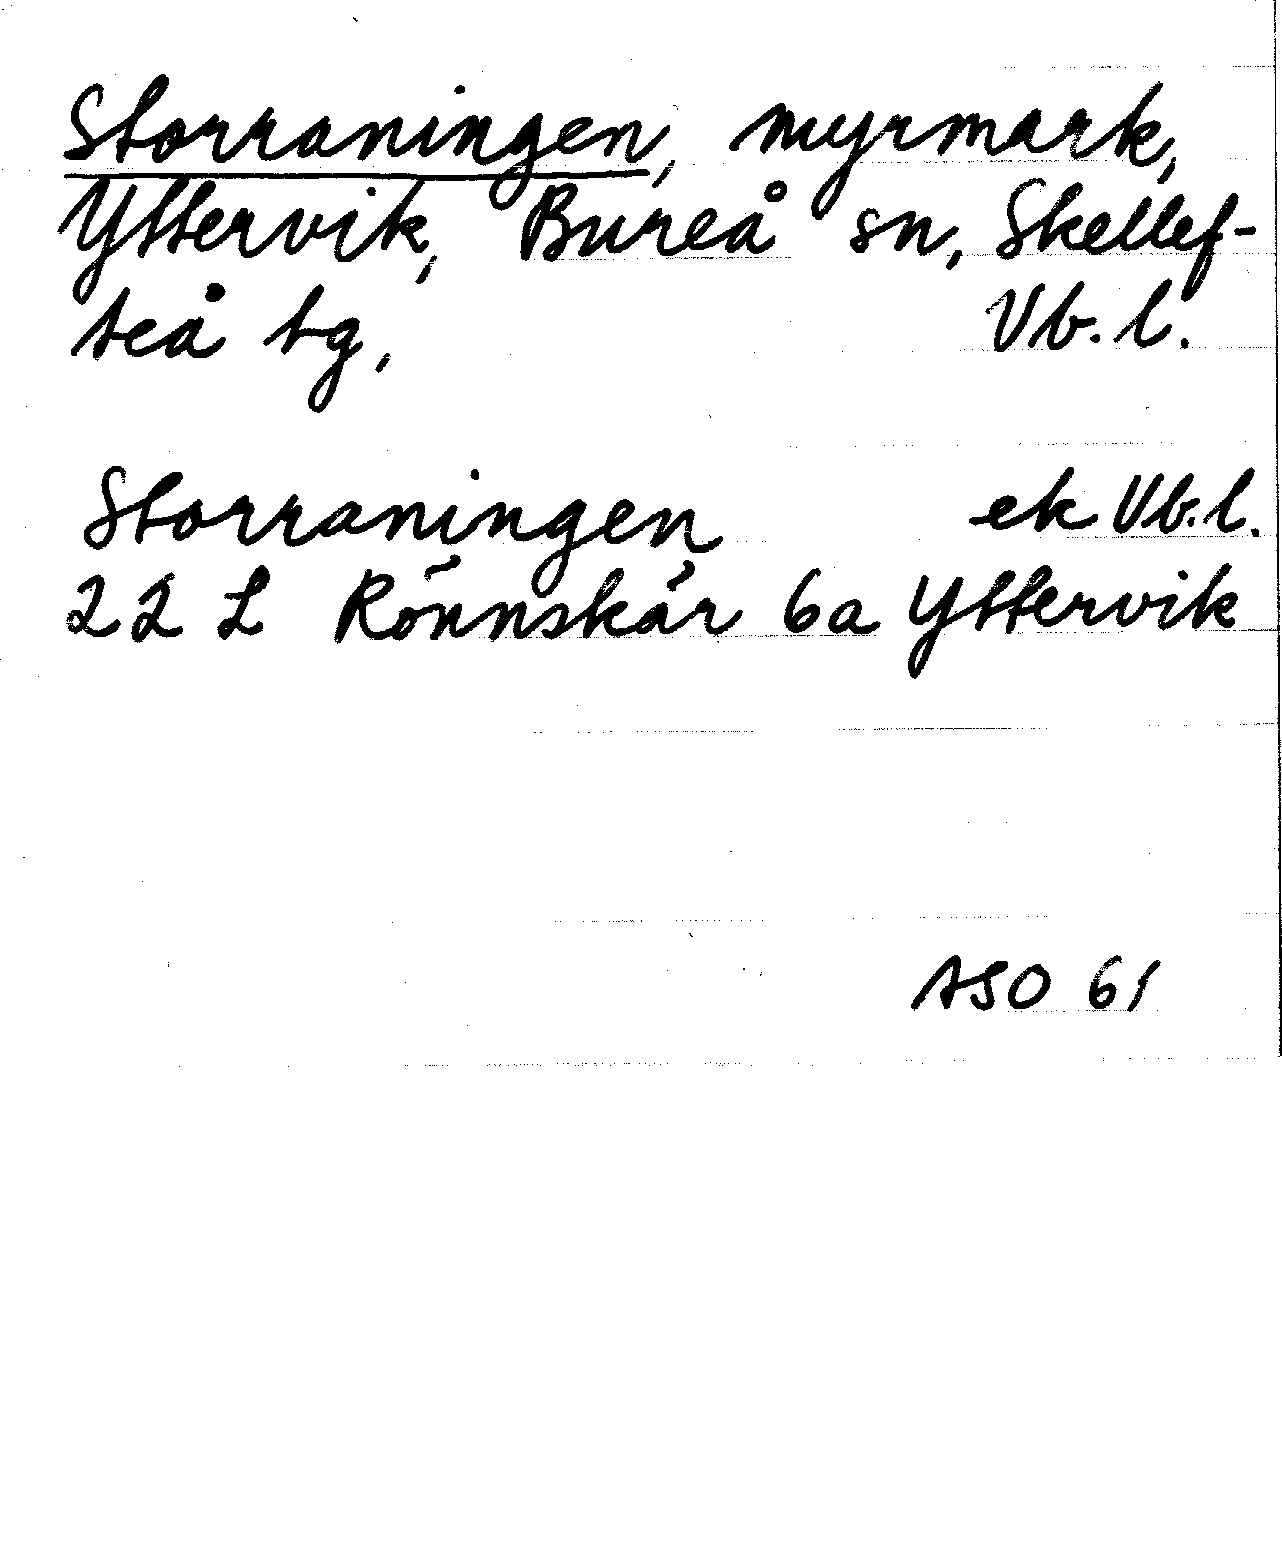 Storraningen, myrmark,
Yttervik, Bureå sn, Skellef-
teå tg, Vb. l.
Storraningen ek Vb. l.
22 L Rönnskär 6a Yttervik
ASO 61